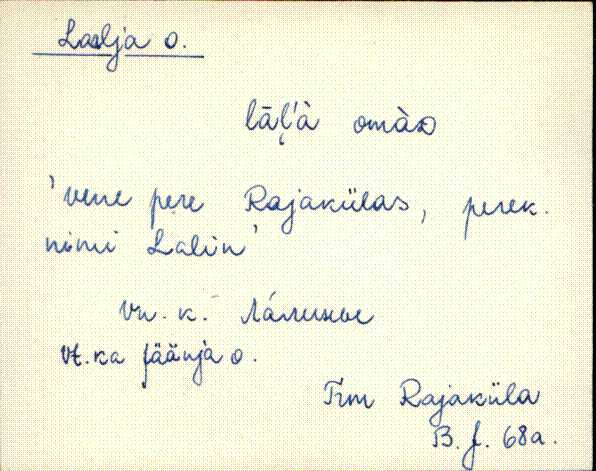 Laalja o.
lāl̦'à omàᴅ
'vene pere Rajakülas, perek.
nimi Lalin'
Vn. k. Ла́линые
Vt. ka Jäänja o.
Trm Rajaküla
B. J. 68a.